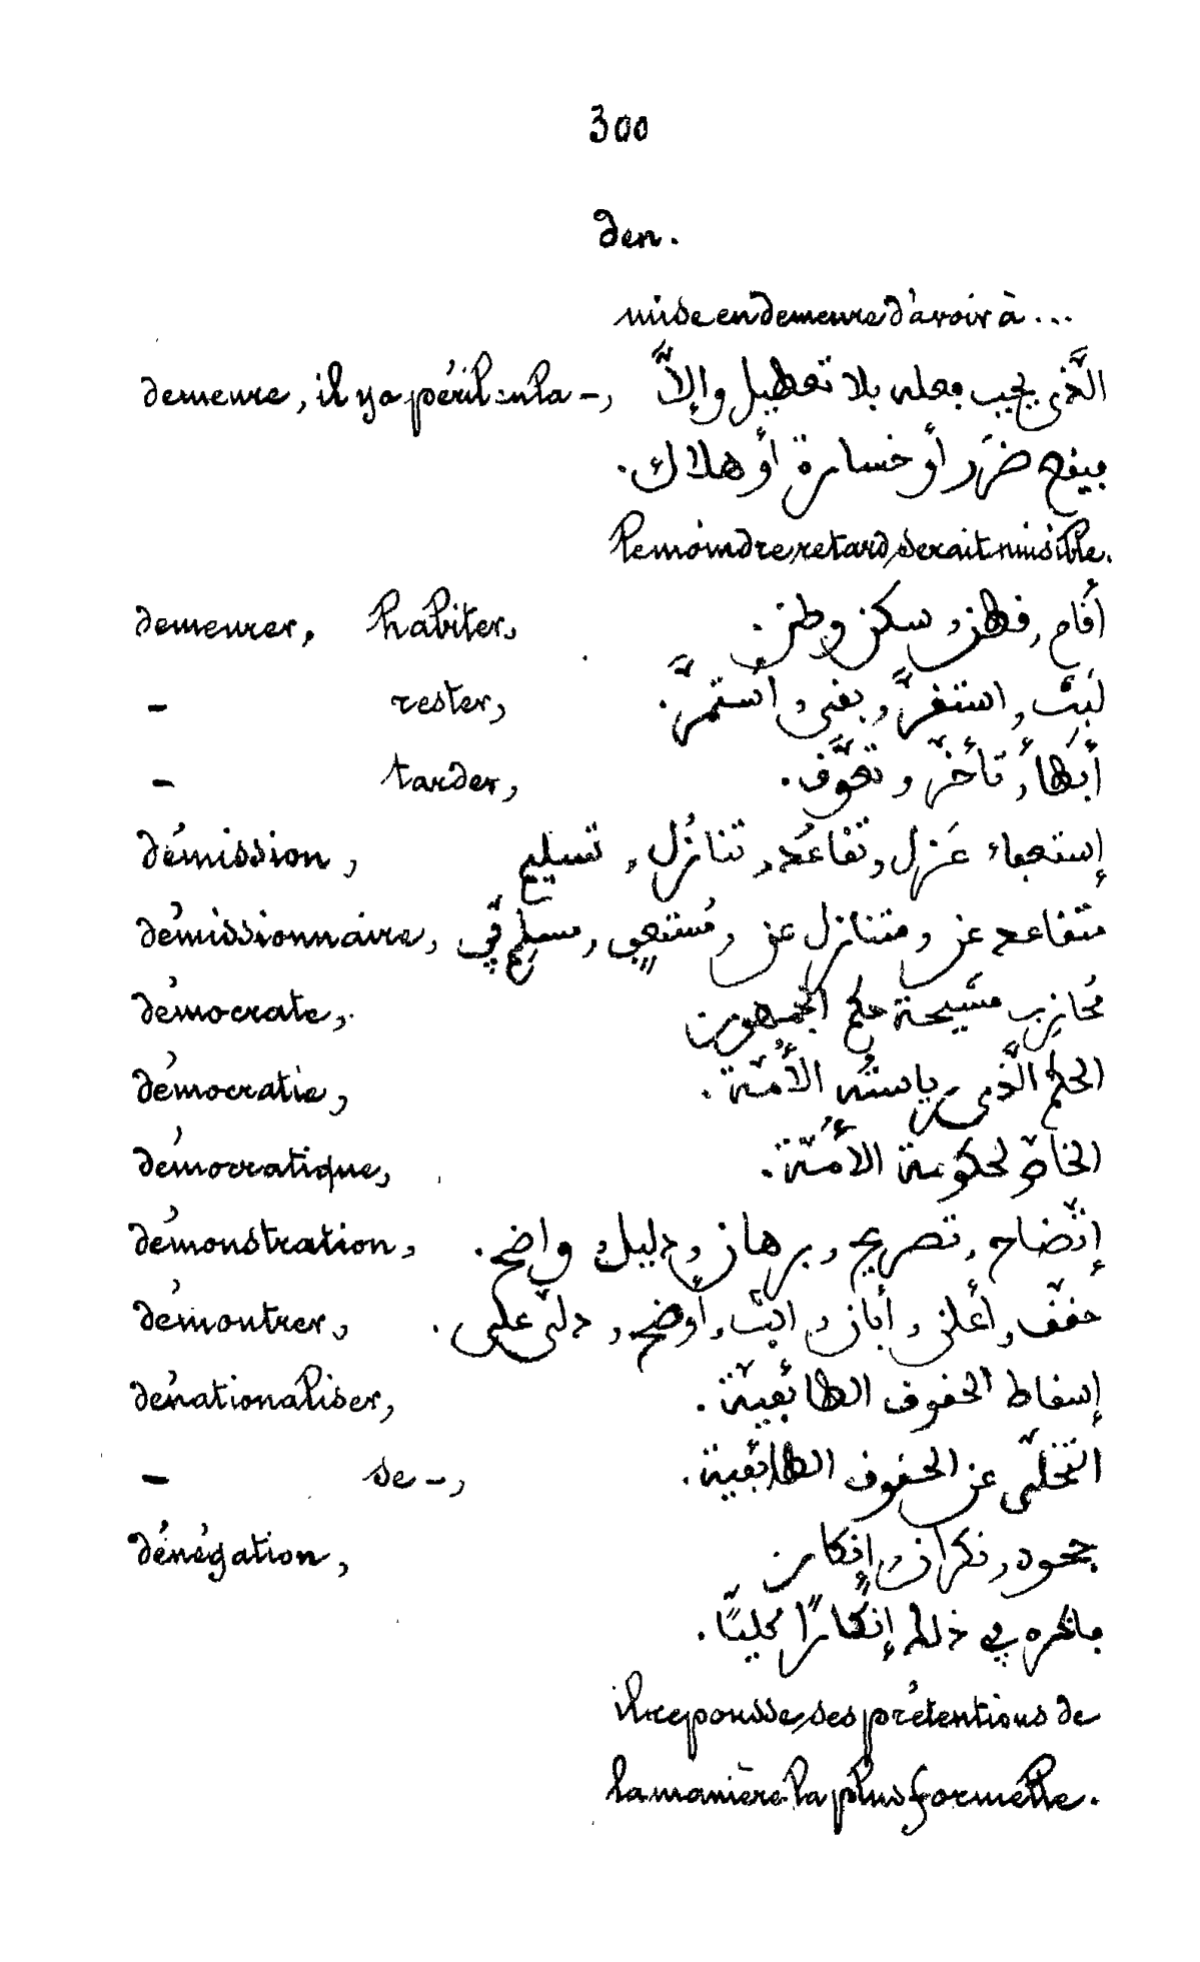 300
den.
mise en demeure d'avoir à...
demeure, il y a péril en la –, الَّذى يجب فعله بلا تعطيل وإلاَّ
فيقع ضرَر أو خسارة أو هلاك.
le moindre retard serait nuisible.
demeurer, habiter, أقام, قطن, سكن وطن.
– rester, لبَث, استقرَّ, بقى, استمرَّ.
– tarder, أبطأ, تأخّر, تعوَّق.
démission, إستعفاء عَزل, تقاعُد, تنازُل, تسليم
démissionnaire, متقاعد عن, متنازل عن, مُستعفٍ, مسلِّم في
démocrate, مُحازب مشيحة حكم الجمهور
démocratie, الحكم الَّذى رياسته الأُمّة.
démocratique, الخاصّ لحكومة الأُمّة.
démonstration, إتّضاح, تصريح, برهان, دليل, واضح.
démontrer, حقّق, أعلن, أبان, اثبت, أوضح, دلّ على.
dénationaliser, إسقاط الحقوق الطائفيّة.
– se –, التخلّى عن الحقوق الطائفية.
dénégation, جحود, نكران, إنكار
فانكره في ذلك إنكارًا كليًّا.
il repousse ses prétentions de
la manière la plus formelle.